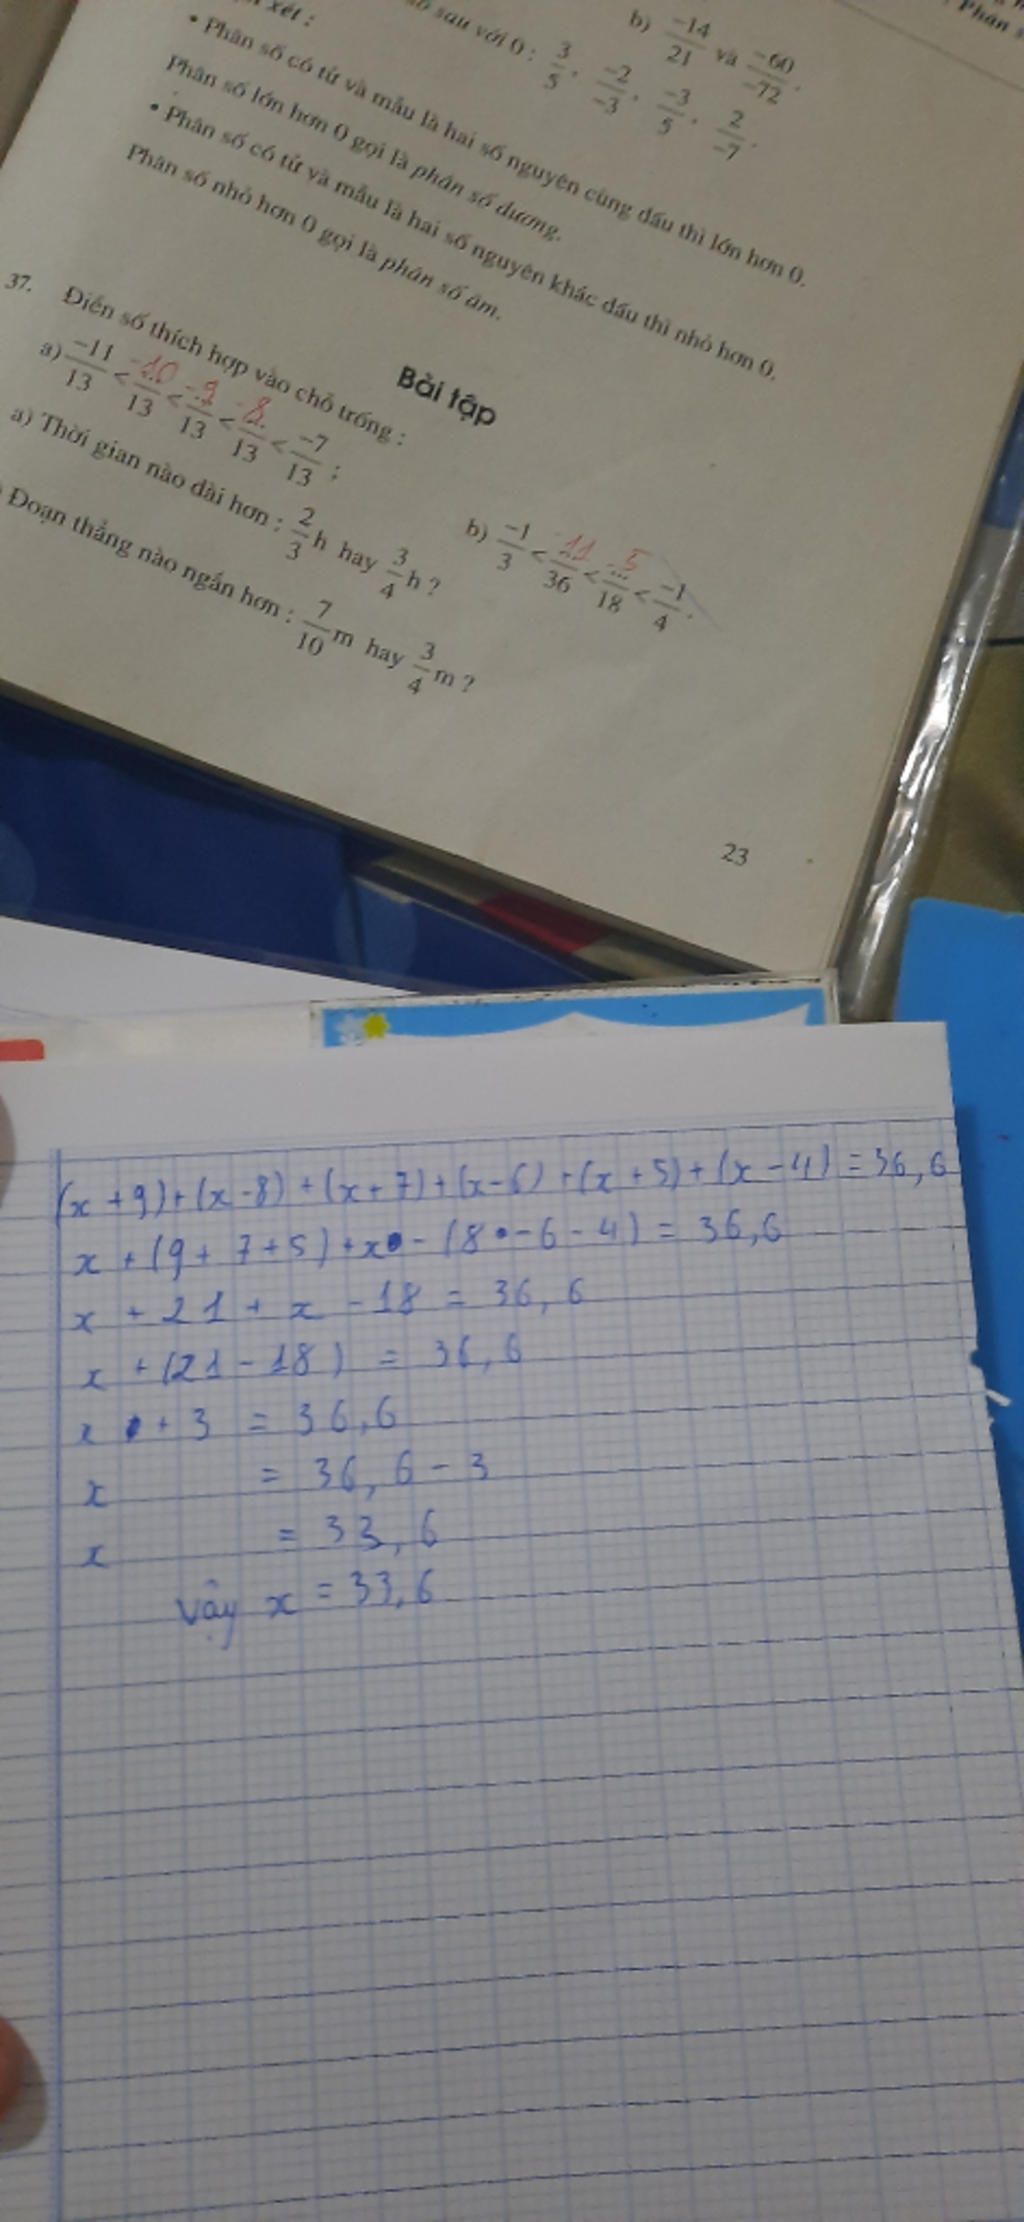 xét :
số sau với 0 : 3/5, -2/-3, -3/5, 2/-7.
b) -14/21 và -60/-72.
• Phân số có tử và mẫu là hai số nguyên cùng dấu thì lớn hơn 0.
Phân số lớn hơn 0 gọi là phân số dương.
• Phân số có tử và mẫu là hai số nguyên khác dấu thì nhỏ hơn 0.
Phân số nhỏ hơn 0 gọi là phân số âm.
Bài tập
37. Điền số thích hợp vào chỗ trống :
a) -11/13 < -10/13 < -9/13 < -8/13 < -7/13 ;
b) -1/3 < -11/36 < -5/18 < -1/4.
a) Thời gian nào dài hơn : 2/3 h hay 3/4 h ?
Đoạn thẳng nào ngắn hơn : 7/10 m hay 3/4 m ?
23
(x + 9) + (x - 8) + (x + 7) + (x - 6) + (x + 5) + (x - 4) = 36,6
x + (9 + 7 + 5) + x - (8 - 6 - 4) = 36,6
x + 21 + x - 18 = 36,6
x + (21 - 18) = 36,6
x + 3 = 36,6
x = 36,6 - 3
x = 33,6
Vậy x = 33,6